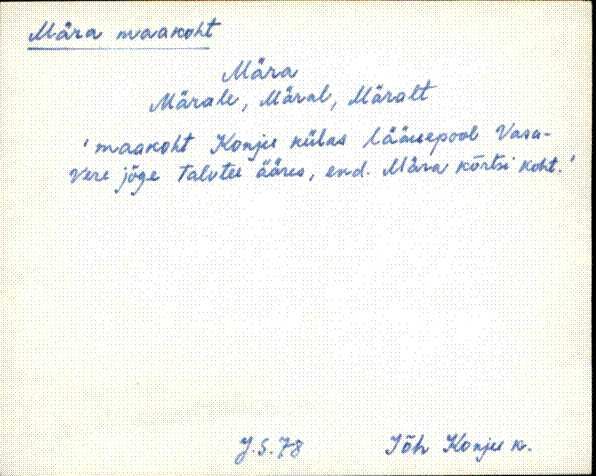 Mära maakoht
Mära
Märale, Märal, Märalt
'maakoht Konju külas läänepool Vasa-
vere jõge Talutee ääres, end. Mära kõrtsi koht.'
J.S.78 Jõh Konju k.